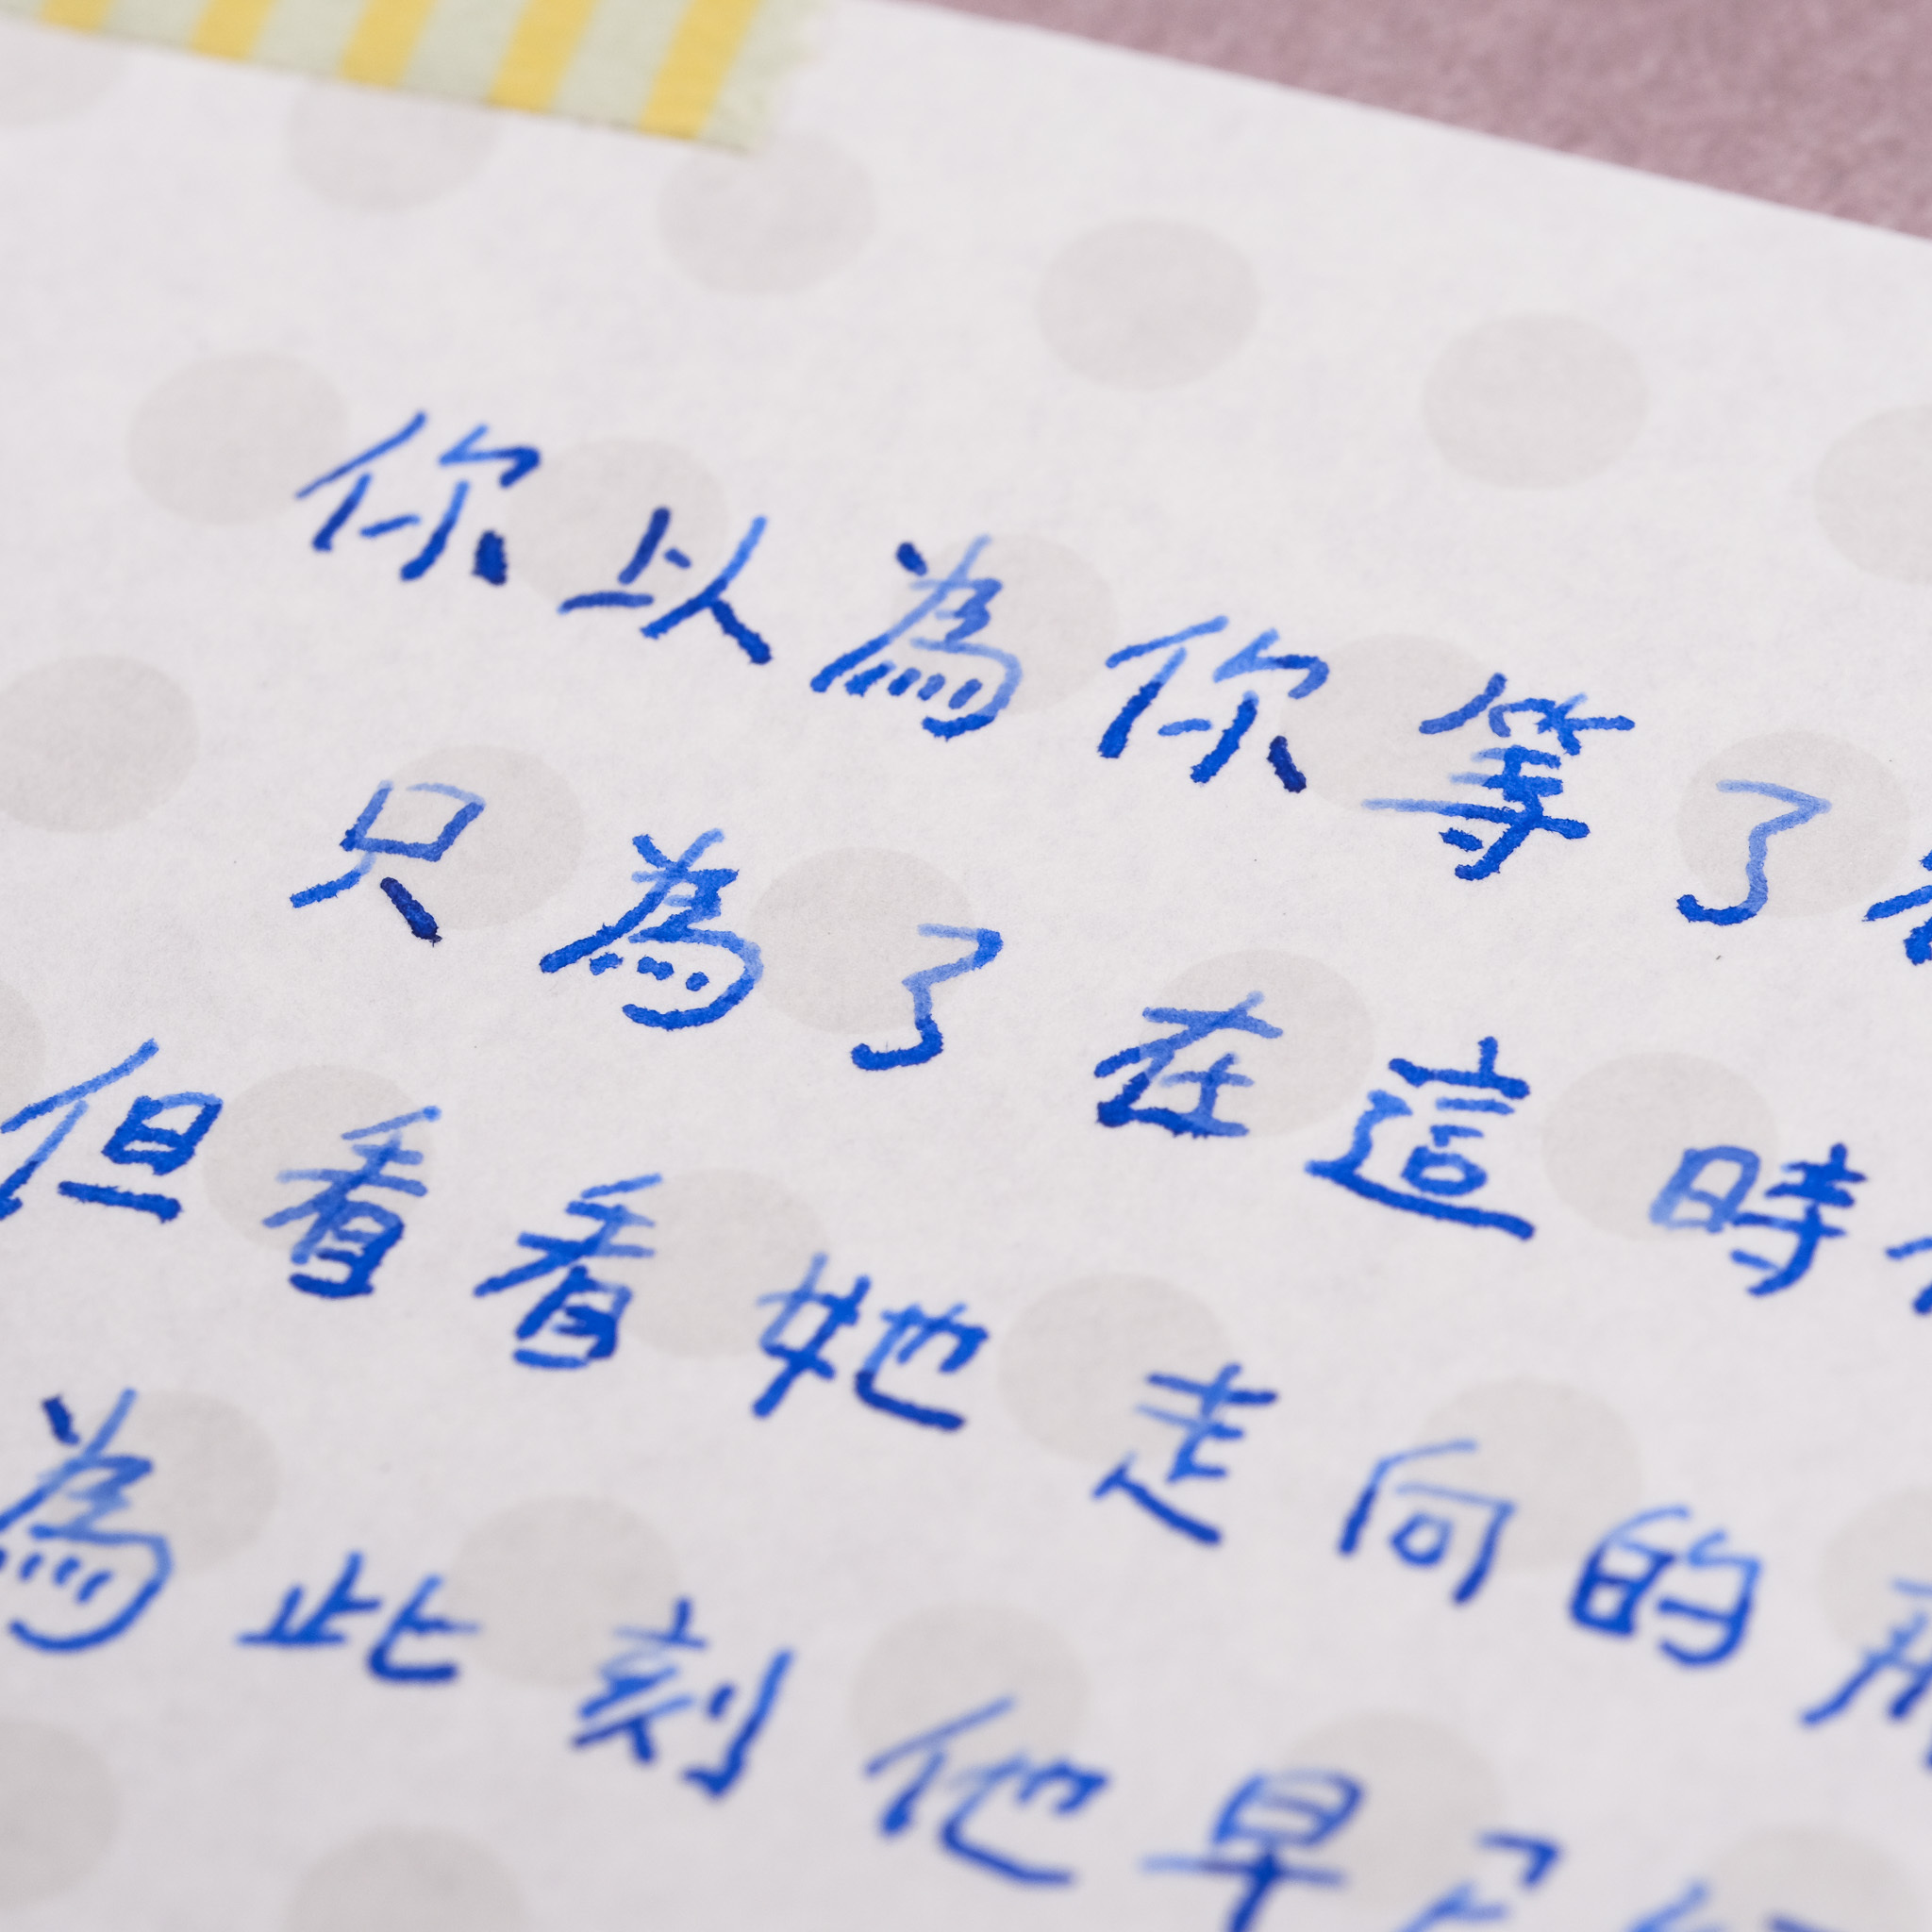 你以為你等了
只為了在這時
但看看她走向的
為此刻他早已